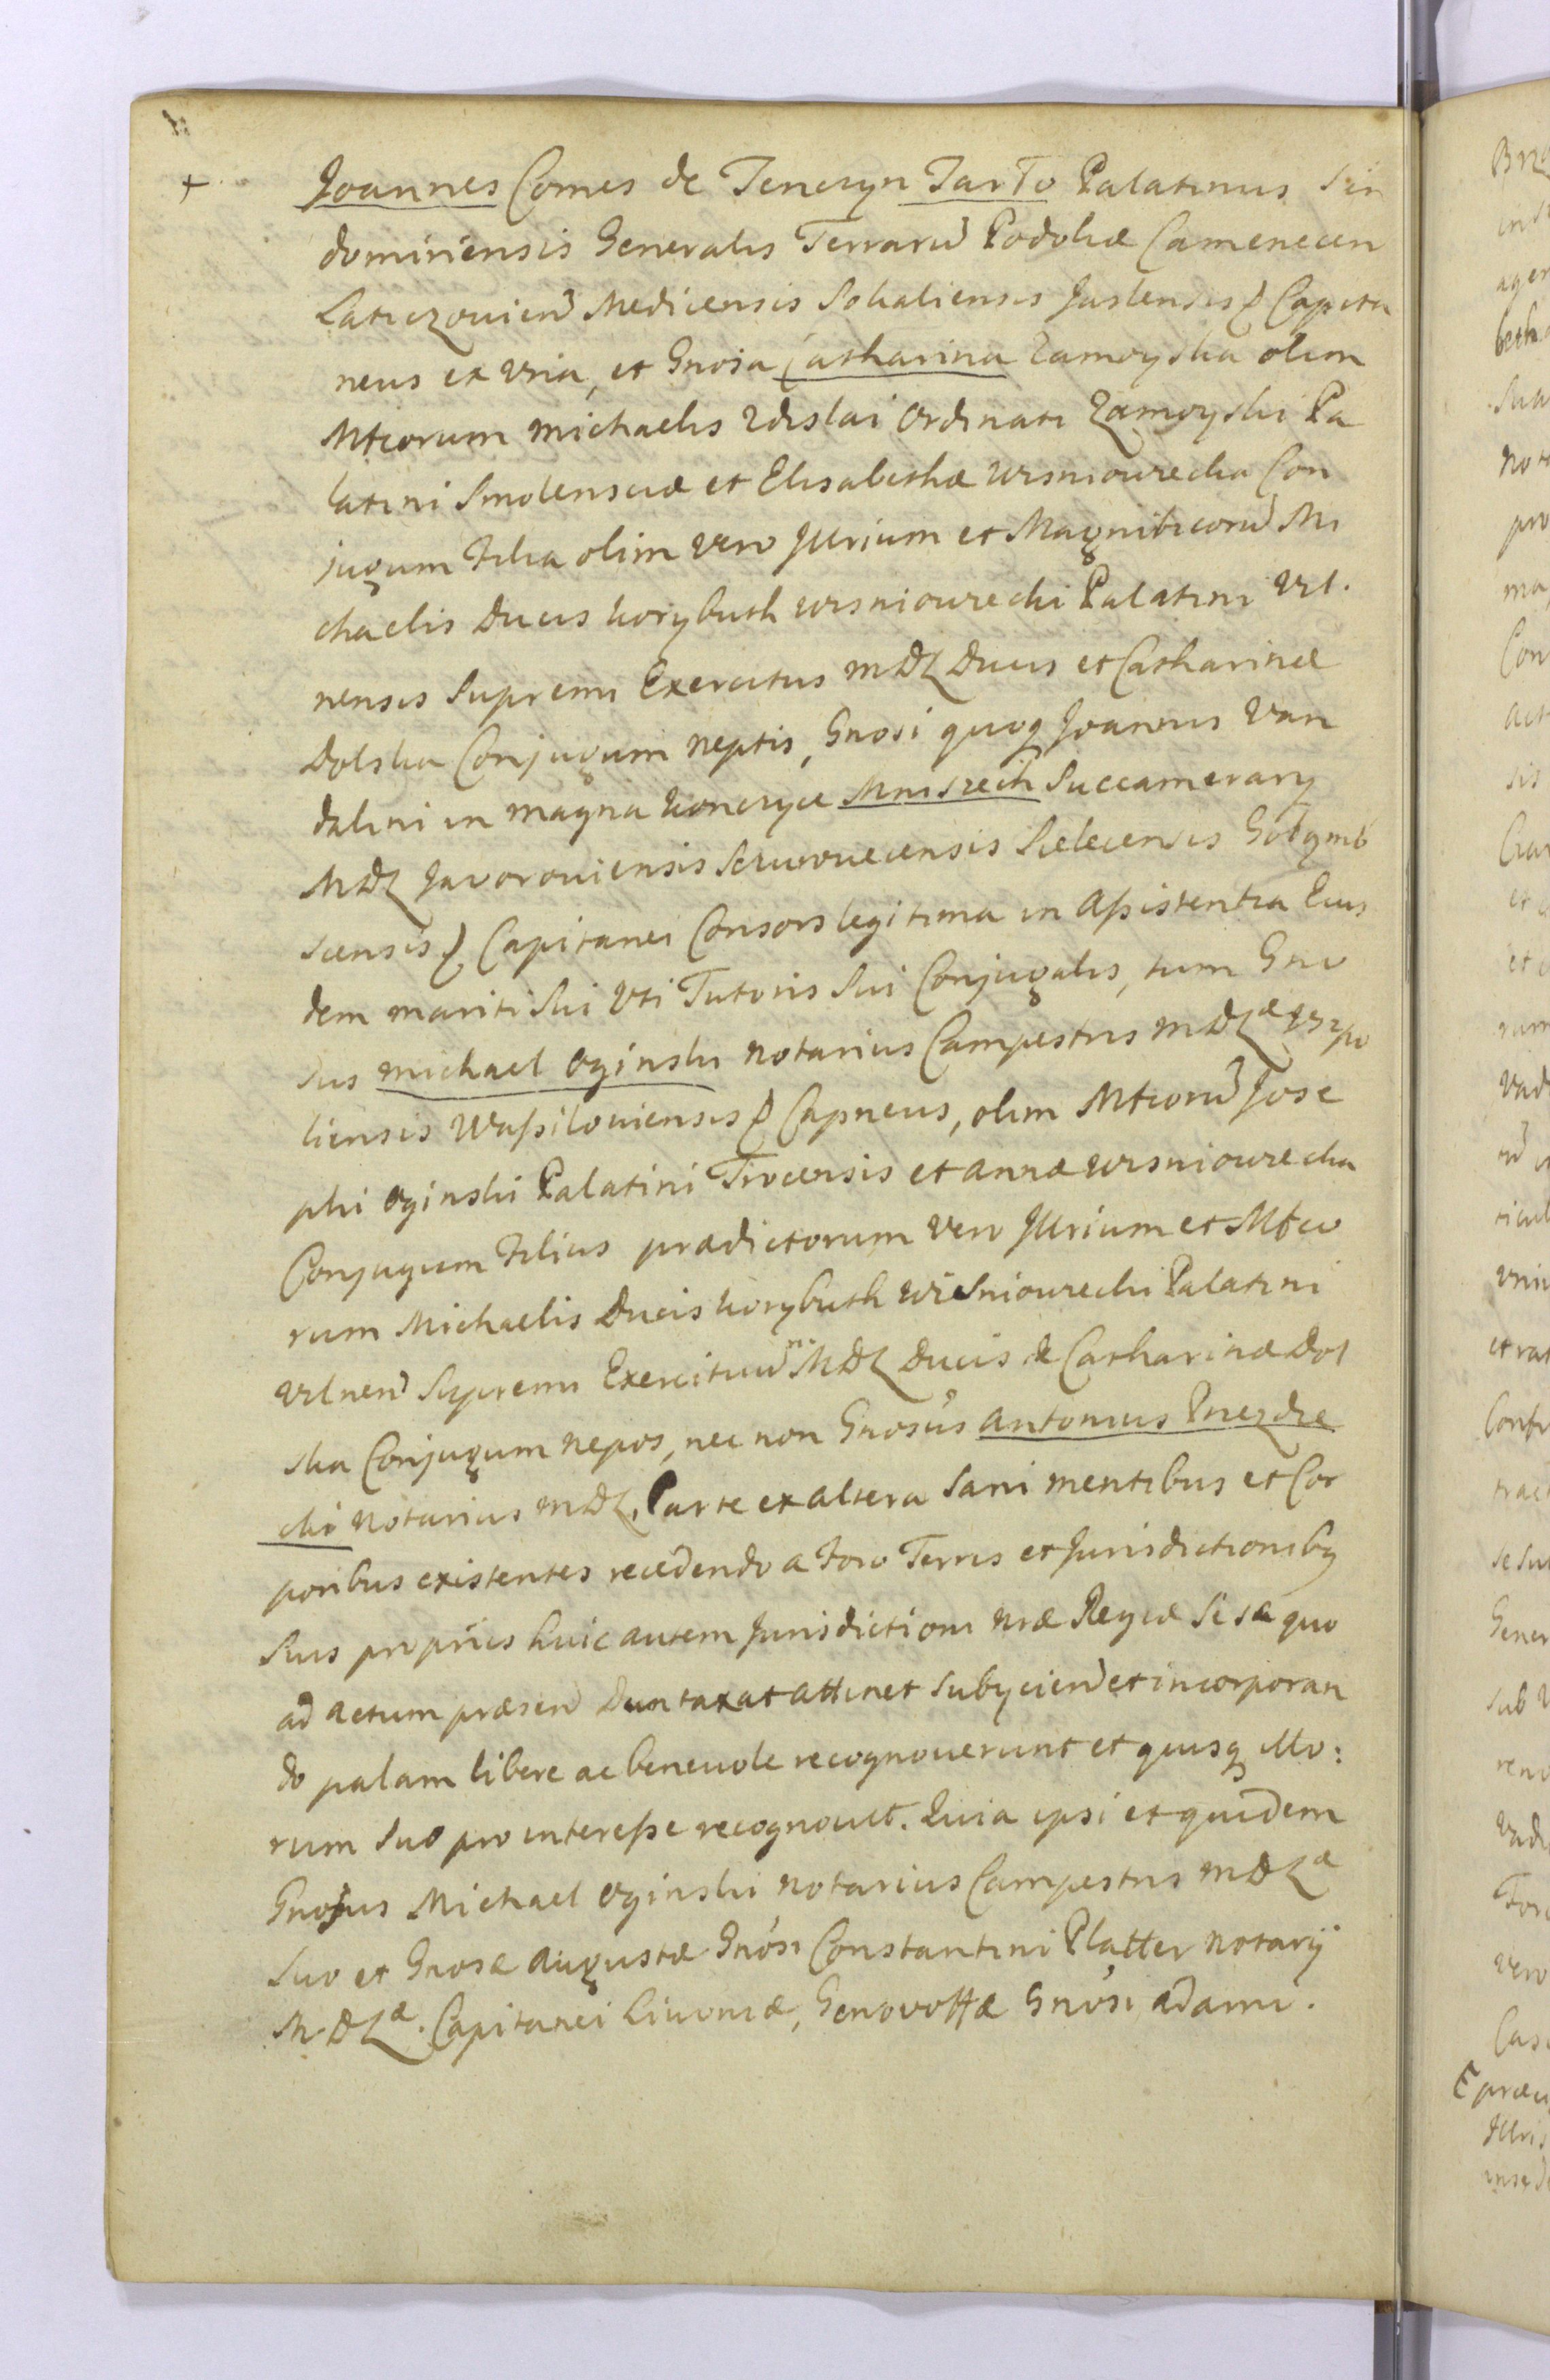 + Joannes Comes de Tenczyn Tarło Palatinus Sen
domiriensis Generalis Terrarũ Podoliæ Camenecen
Laticzovien̄ Medicensis Sokaliensis Jaslensis & Capita
neus ex vna, et Gnosa Catharina Zamoyska olim
Mficorum Michaelis Zdislai Ordinati Zamoyski Pa
latini Smolensciæ et Elisabethæ Wisniowiecka Con
jugum Filia olim vero Jllrium et Magnificorũ Mi
chaelis Ducis Korybuth Wisniowiecki Palatini Vil.
nensis Supremi Exercitus MDL Ducis et Catharinæ
Dolska Conjugum neptis, Gnosi quoq Joannis Van
dalini in magna Konczyce Mniszech Succamerary
MDL Javoroviensis Sczurovecensis Sielecensis Golymb
scensis & Capitanei Consors legitima in Assistentia Eius
dem mariti Sui Vti Tutoris Sui Conjugalis, tum Gno
sus Michael Oginski Notarius Campestris MDLæ
liensis Wassiloviensis & Capneus, olim Mficorũ Jose
phi Oginski Palatini Trocensis et Annæ Wisniowiecka
Conjugum Filius prædictorum vero Jllrium et Mfico
rum Michaelis Ducis Korybuth Wisniowiecki Palatini
Vilnen̄ Supremi Exercituũ MDL Ducis & Catharinæ Dol
ska Conjugum Nepos, nec non Gnosus Antonius Przezdzie
cki Notarius MDL. Parte ex altera Sani mentibus et Cor
poribus existentes recedendo a Foro Terris et Jurisdictionibꝫ
Suis proprijs huic autem Jurisdictioni nræ Regiæ Se se quo
ad Actum præsen̄ Duntaxat attinet Subyciend et incorporan
do palam libere ac benevole recognoverunt et quisq Illo:
rum Suo pro interesse recognovit. Quia ipsi et quidem
Gnosus Michael Oginski Notarius Campestris MDLæ
Suo et Gnosæ Augustæ Gnosi Constantini Platter Notarij
M.DLæ. Capitanei Livoniæ, Genovoffæ Gnosi Adami.